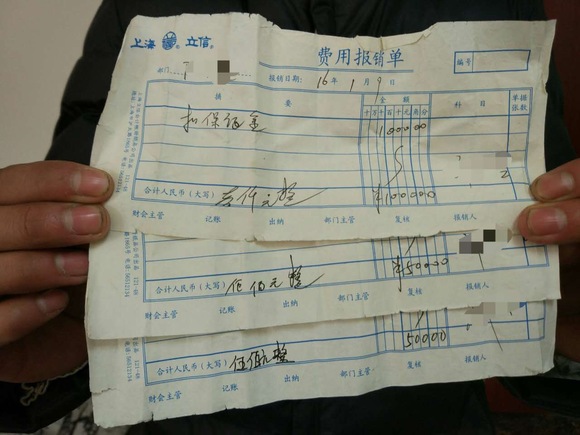 上海 立信
费用报销单
编号
部门
报销日期: 16年 1月 9日
摘 要
金 额
科 目
单据张数
十万千百十元角分
扣保证金
100000
合计人民币(大写) 壹仟元整
¥100000
财会主管 记账 出纳 部门主管 复核 报销人
合计人民币(大写) 伍佰元整
¥50000
财会主管 记账 出纳 部门主管 复核 报销人
50000
合计人民币(大写) 伍佰元整
财会主管 记账 出纳 部门主管 复核 报销人